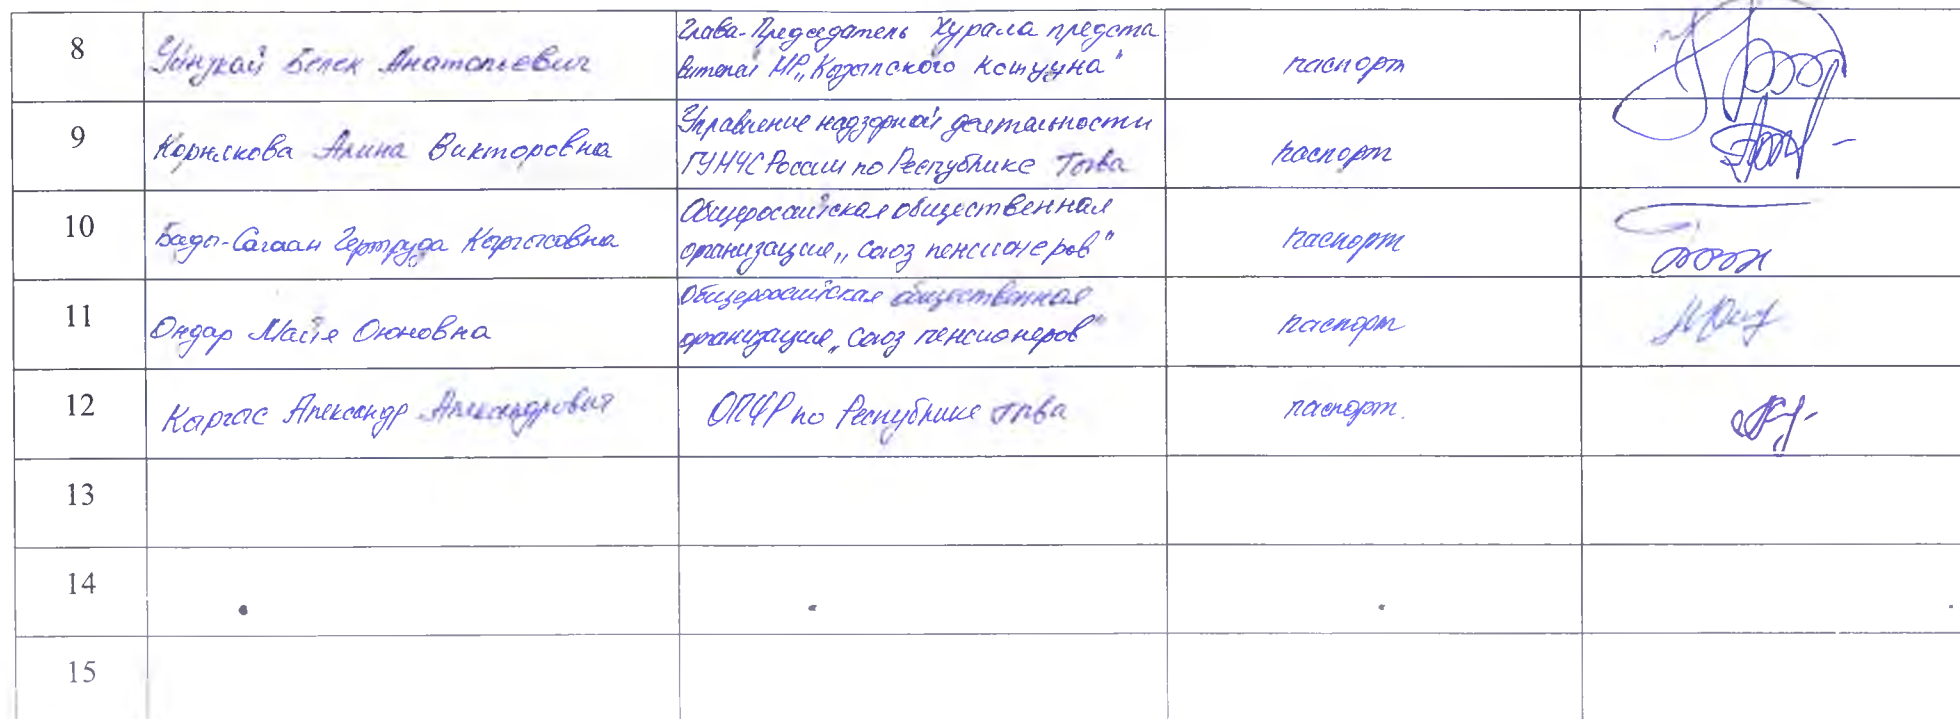 8
Уйнукай Белек Анатольевич
Глава-Председатель Хурала предста
вителей МР „Каа-Хемского кожууна"
паспорт
9
Корнякова Алина Викторовна
Управление надзорной деятельности
ГУ МЧС России по Республике Тыва
паспорт
10
Бады-Сагаан Гертруда Кыргысовна
Общероссийская общественная
организация „союз пенсионеров"
паспорт
11
Ондар Майя Оюновна
Общероссийская общественная
организация „союз пенсионеров"
паспорт
12
Каргас Александр Александрович
ОПФР по Республике Тыва
паспорт.
13
14
15